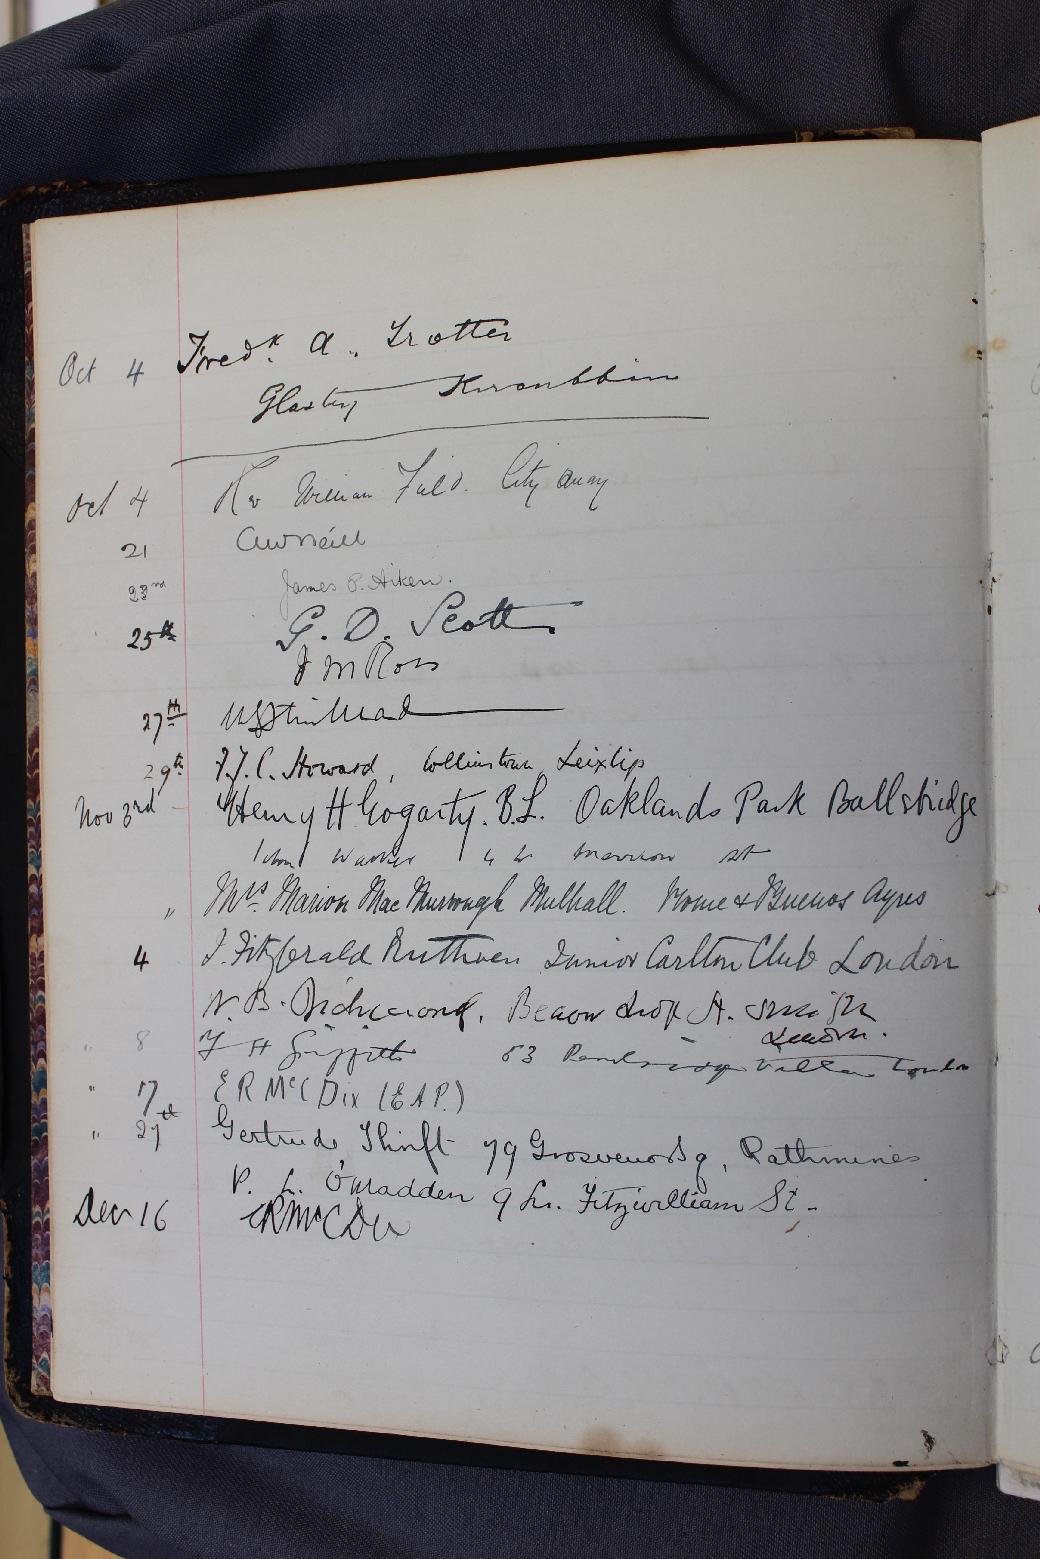 Oct 4 Fredk. A. Trotter
Oct 4 William Field. City Quay
21 CAW Neill
23rd James P. Aiken.
25th G. D. Scott
J M Ross
27th
29th J.J.C. Howard, Collinstown, Leixlip
Nov 3rd Henry H Gogarty. B.L. Oaklands Park Ballsbridge
John Walker Merrion St
" Mrs. Marion MacMurrough Mulhall. Rome & Buenos Ayres
4 J. Fitzgerald Ruthven Junior Carlton Club London
N. B.
London.
" 8 F H Griffith 53 Villas London
" 17 E R McC Dix (E A P.)
" 27th Gertrude Thrift 79 Grosvenor Sq, Rathmines
P. L. O'Madden 9 Lr. Fitzwilliam St.
Dec 16 ERMcC Dix